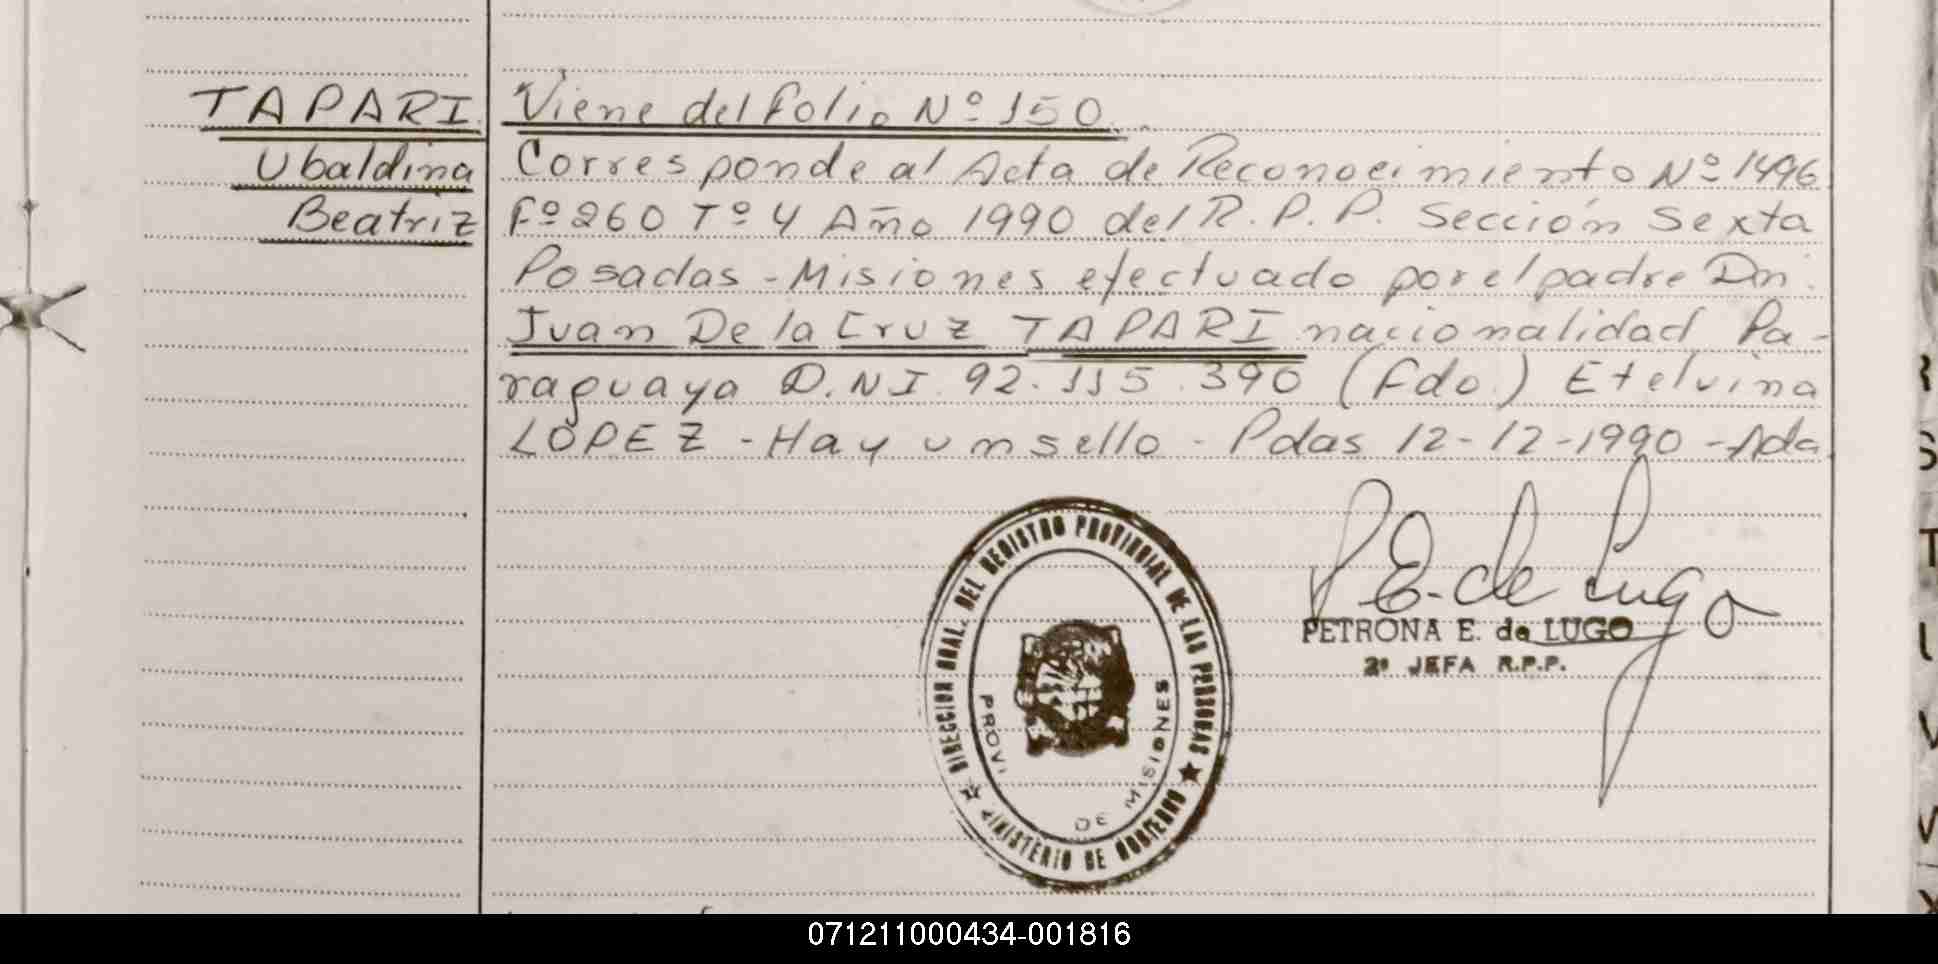 TAPARI
Ubaldina
Beatriz
Viene del folio Nº 150.
Corresponde al Acta de Reconocimiento Nº 1496
Fº 260 Tº 4 Año 1990 del R.P.P. Sección Sexta
Posadas - Misiones efectuado por el padre Dn.
Juan De la Cruz TAPARI nacionalidad Pa-
raguaya D.N.I. 92.115.390 (Fdo.) Etelvina
LOPEZ - Hay un sello - Pdas 12-12-1990 - Ada
P E. de Lugo
PETRONA E. de LUGO
2ª JEFA R.P.P.
DIRECCION GRAL. DEL REGISTRO PROVINCIAL DE LAS PERSONAS
MINISTERIO DE GOBIERNO
PROVI
DE MISIONES
R
S
T
V
X
071211000434-001816